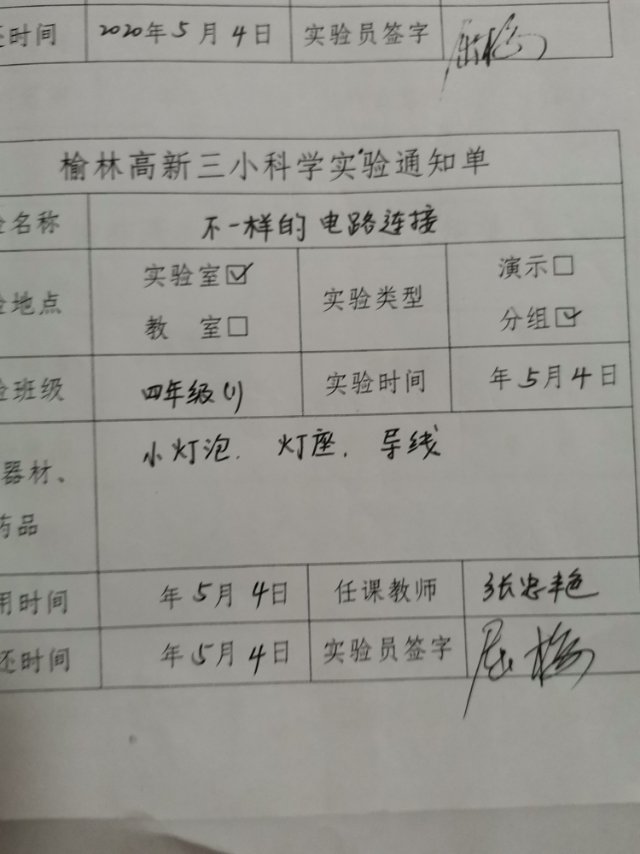 还时间 2020年5月4日 实验员签字
榆林高新三小科学实验通知单
验名称 不一样的电路连接
验地点 实验室☑ 教 室☐ 实验类型 演示☐ 分组☑
验班级 四年级(1) 实验时间 年5月4日
器材、 小灯泡. 灯座. 导线
药品
用时间 年5月4日 任课教师 张忠艳
还时间 年5月4日 实验员签字 屈梅